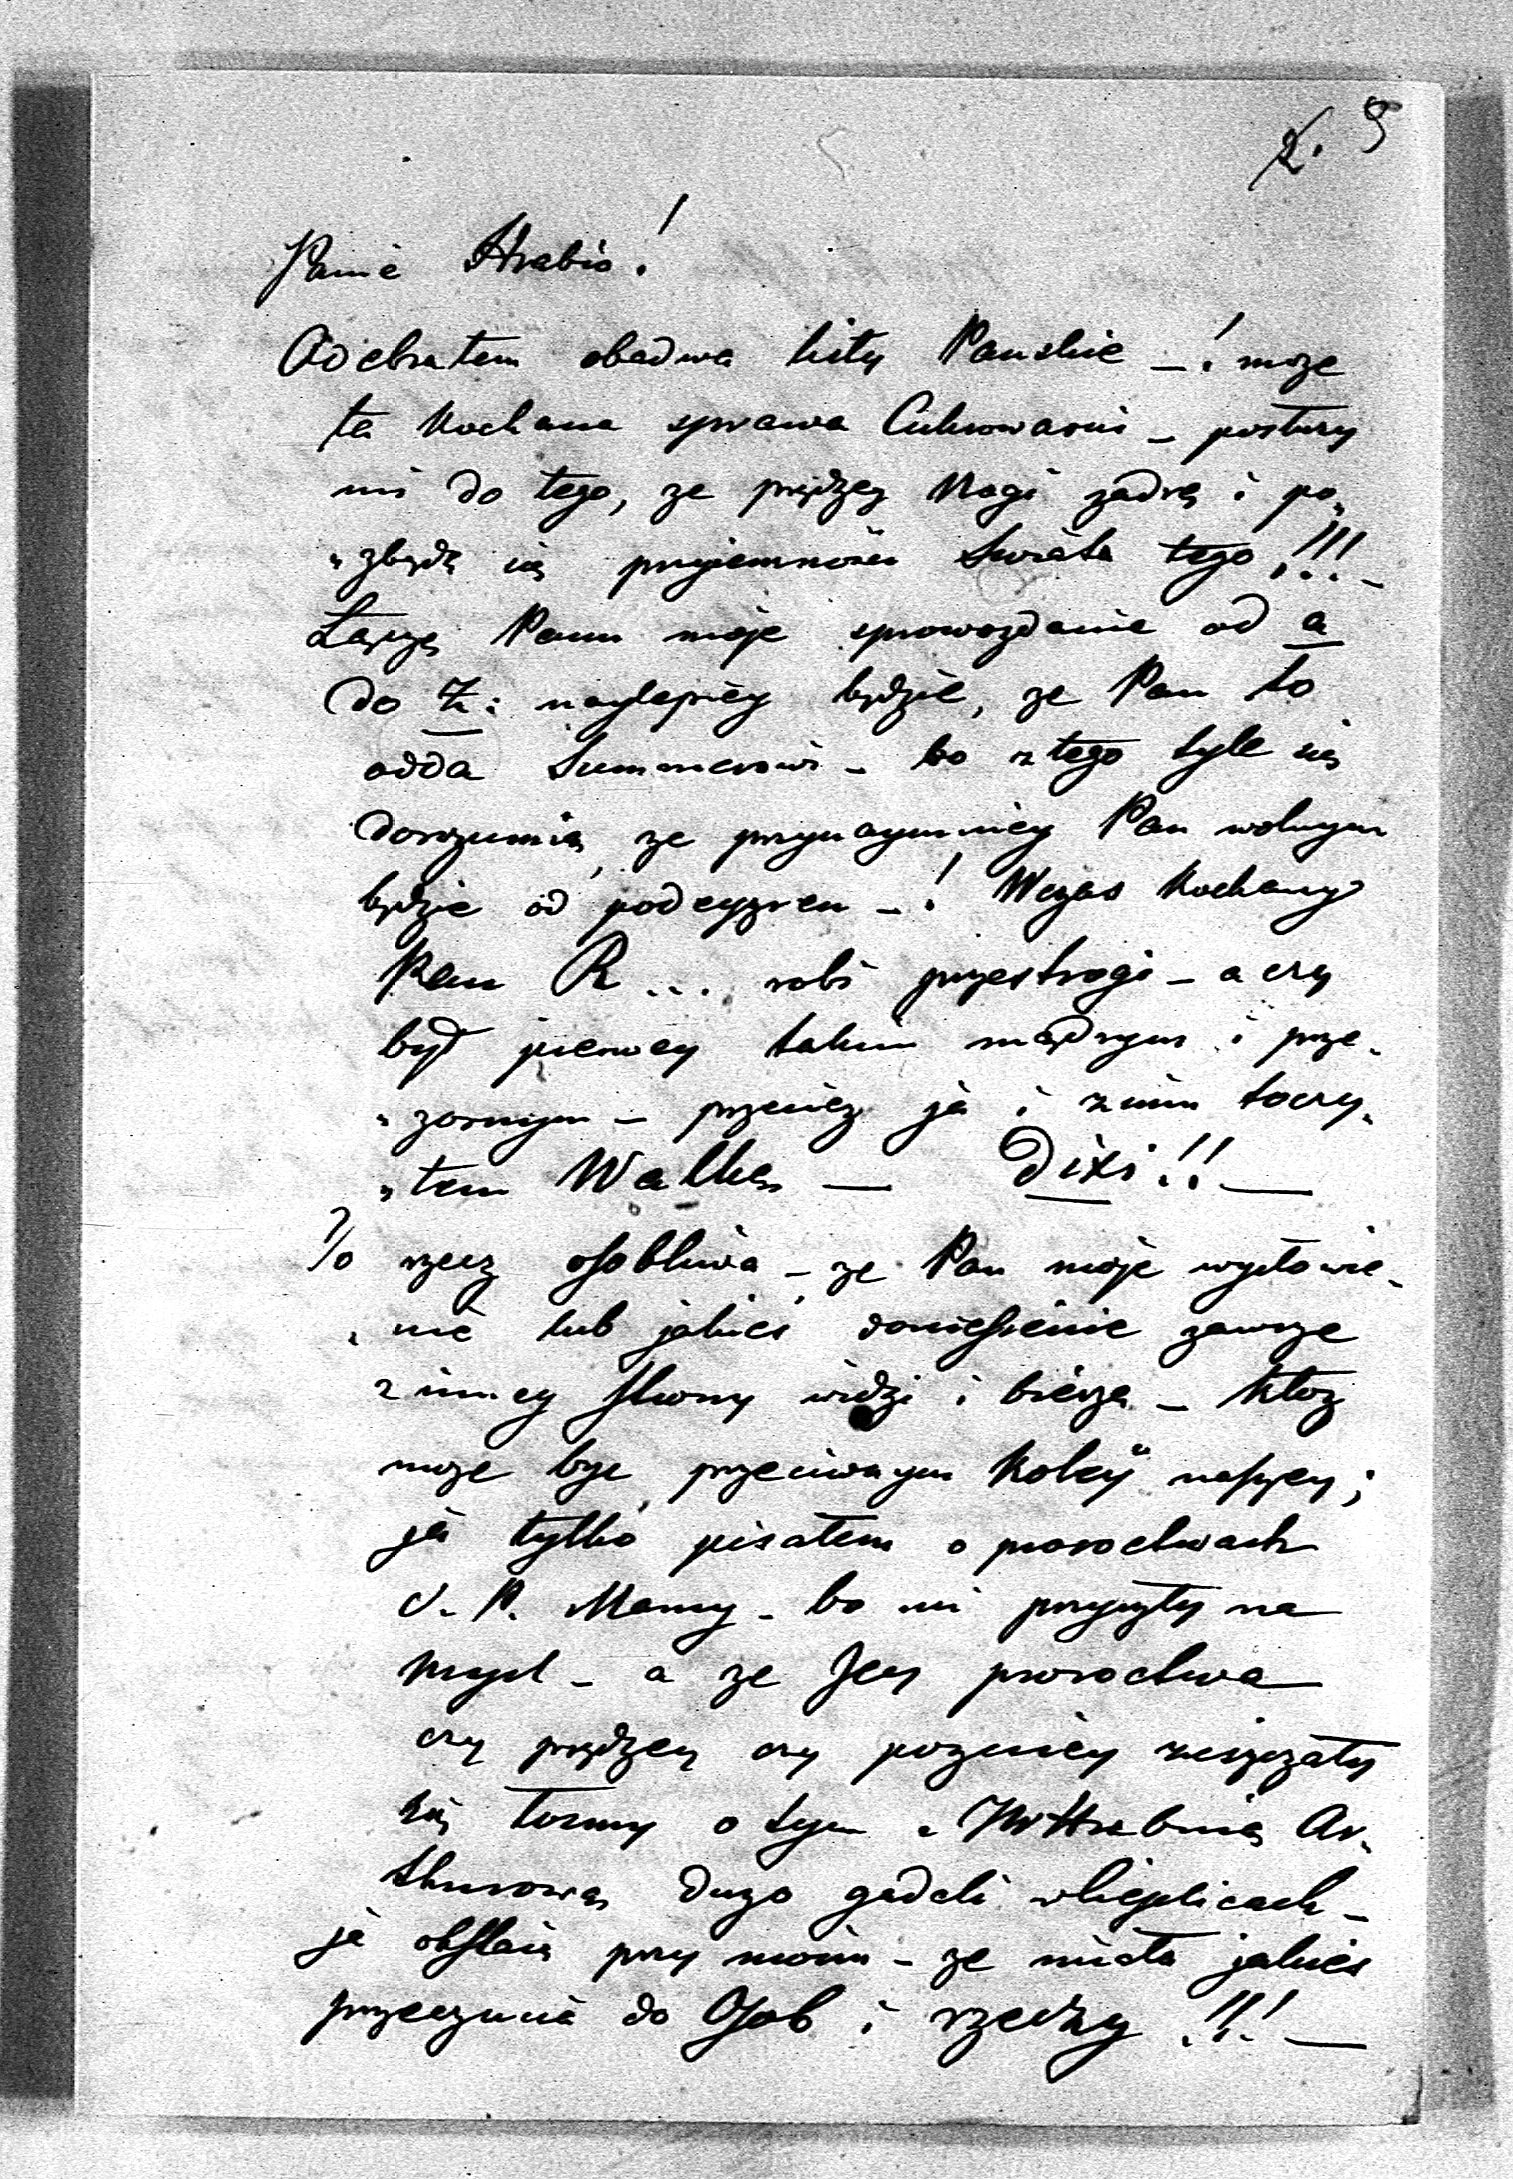 2. 5
Panie Hrabio!
Odebrałem obadwa listy Panskie –! moze
ta kochana sprawa Cukrowarni – posłuzy
mi do tego, ze prędzey Nogi zadrę i po„
„zbędę się przyiemnosci Swiata tego!!! –
Łączę Panu moje sprowozdanie od a
do z: naylepiey będzie, ze Pan to
odda Summerowi – bo z tego tyle się
dorozumią, ze przynaymniey Pan wolnym
będzie od podeyzren –! Wczas kochany
Pan R... robi przestrogi – a czy
był pierwey takim mądrym i prze„
„zornym – przeciez ja i z nim toczy„
„łem Walkę — Dixi!! —
To rzecz osobliwa – ze Pan moje wysłowie„
„nie lub jakies doniesienie zawsze
z inney strony widzi i bierze – ktoz
moze byc przeciwnym Koleÿ naszey;
ja tylko pisałem o proroctwach
S. P. Mamy – bo mi przyszły na
mysl – a ze Jey proroctwa
czy prędzey czy pozniey ziszczały
się tosmy o tym z JW Hrabiną Ar„
thurową duzo gadali w Cieplicach –
ja obstaię przy moim – ze miała jakies
przeczucia do Osob i rzeczy !!! —